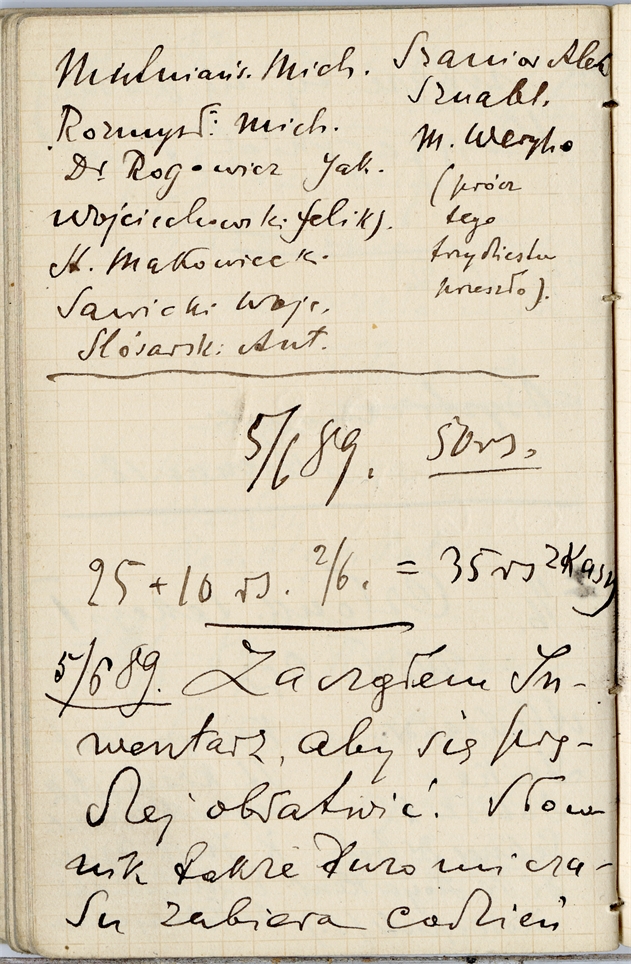 Mich.
Rozmysł: Mich.
Dr Rogowicz Jak.
Wojciechowski Feliks.
A. Makowiecki.
Sawicki Wojc.
Slósarski Ant.
Szanior Alek
Sznabl.
M. Weryho
(prócz
tego
trzydziestu
przeszło).
5/6 89. 50 rs.
25 + 10 rs. 2/6. = 35 rs z Kasy
5/6 89. Zacząłem In-
wentarz, aby się prę-
dzej obłatwić. Słow
nik także dużo mi cza-
su zabiera codzień